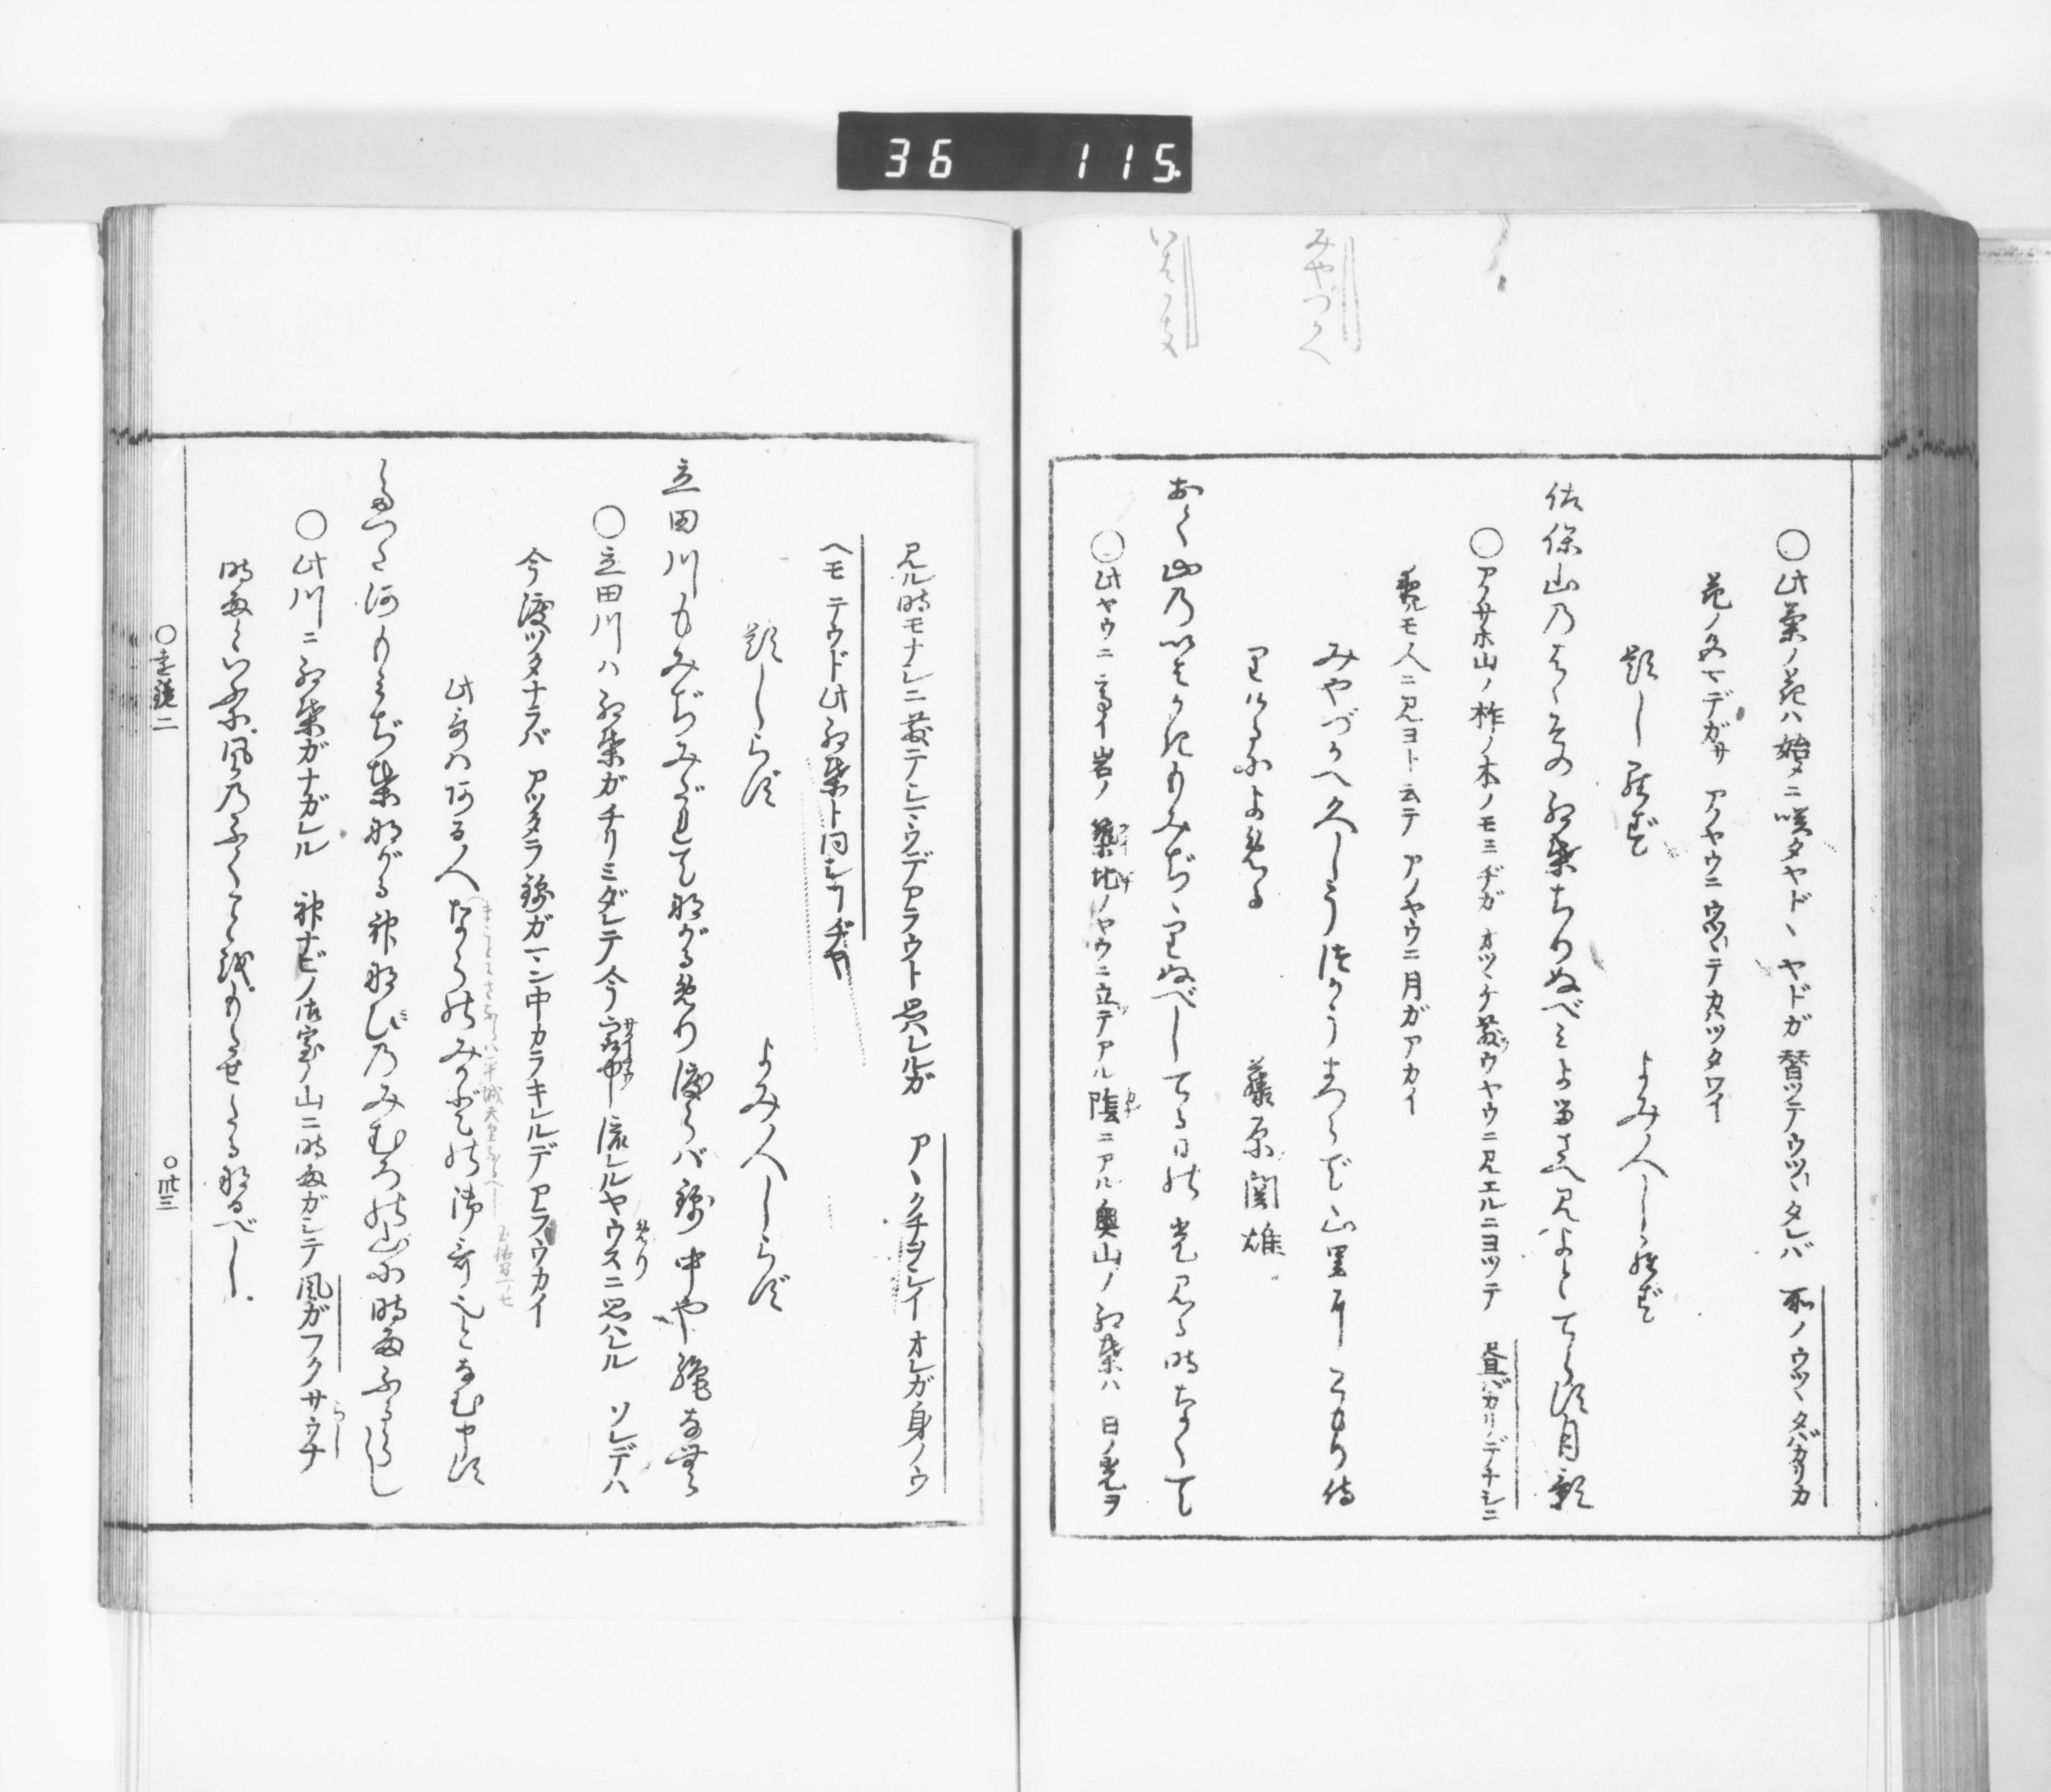 36 115.
みやづかへ
いはがき
○此菊ノ花ハ始メニ咲タヤドヽ ヤドガ替ッテウツヽタレバ 所ノウツヽタバカリカ
花ノ色マデガサ アノヤウニウツヽテカハッタワイ
題しらず よみ人しらず
佐保山のはゝその紅葉ちりぬべみよるさへ見よとてらす月影
○アノサホ山ノ柞ノ木ノモミヂガ オッヽケ散ウヤウニ見エルニヨッテ 昼バカリデナシニ
夜ルモ人ニ見ヨト云テ アノヤウニ月ガアカイ
みやづかへ久しうつかうまつらで山里にこもり侍
りけるによめる 藤原関雄
おく山のいはがきもみぢちりぬべしてる日の光見る時なくて
○此ヤウニ高イ岩ノ築地ノヤウニ立テアル陰ニアル奥山ノ紅葉ハ 日ノ光ヲ
見ル時モナシニ散テシマウデアラウト思ハルルガ アヽクチヲシイ オレガ身ノウ
ヘモ テウド此紅葉ト同シコトヂヤ
題しらず よみ人しらず
立田川もみぢみだれて流るめり渡らば錦中や絶なむ
○立田川ハ紅葉ガチリミダレテ今流レルヤウスニ思ハレル ソレデハ
今渡ッタナラバ アッタラ錦ガマン中カラキレルデアラウカイ
此哥ハある人ならのみかどの御哥也となむ申す
たつた河もみぢ葉流る神なびのみむろの山に時雨ふるらし
○此川ニ紅葉ガナガレル 神ナビノ御室ノ山ニ時雨ガシテ風ガフクサウナ
らし
時雨といふに風のふくことをもたせたるなるべし.
○遠鏡二
○卅三